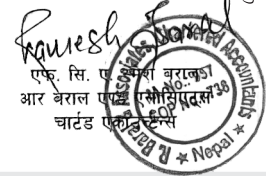 Ramesh Baral
एफ. सि. ए. रमेश बराल
आर बराल एण्ड एसोसिएट्स
चार्टर्ड एकाउन्टेन्स
R. Baral & Associates, Chartered Accountants
COP No.: 738
★ Nepal ★